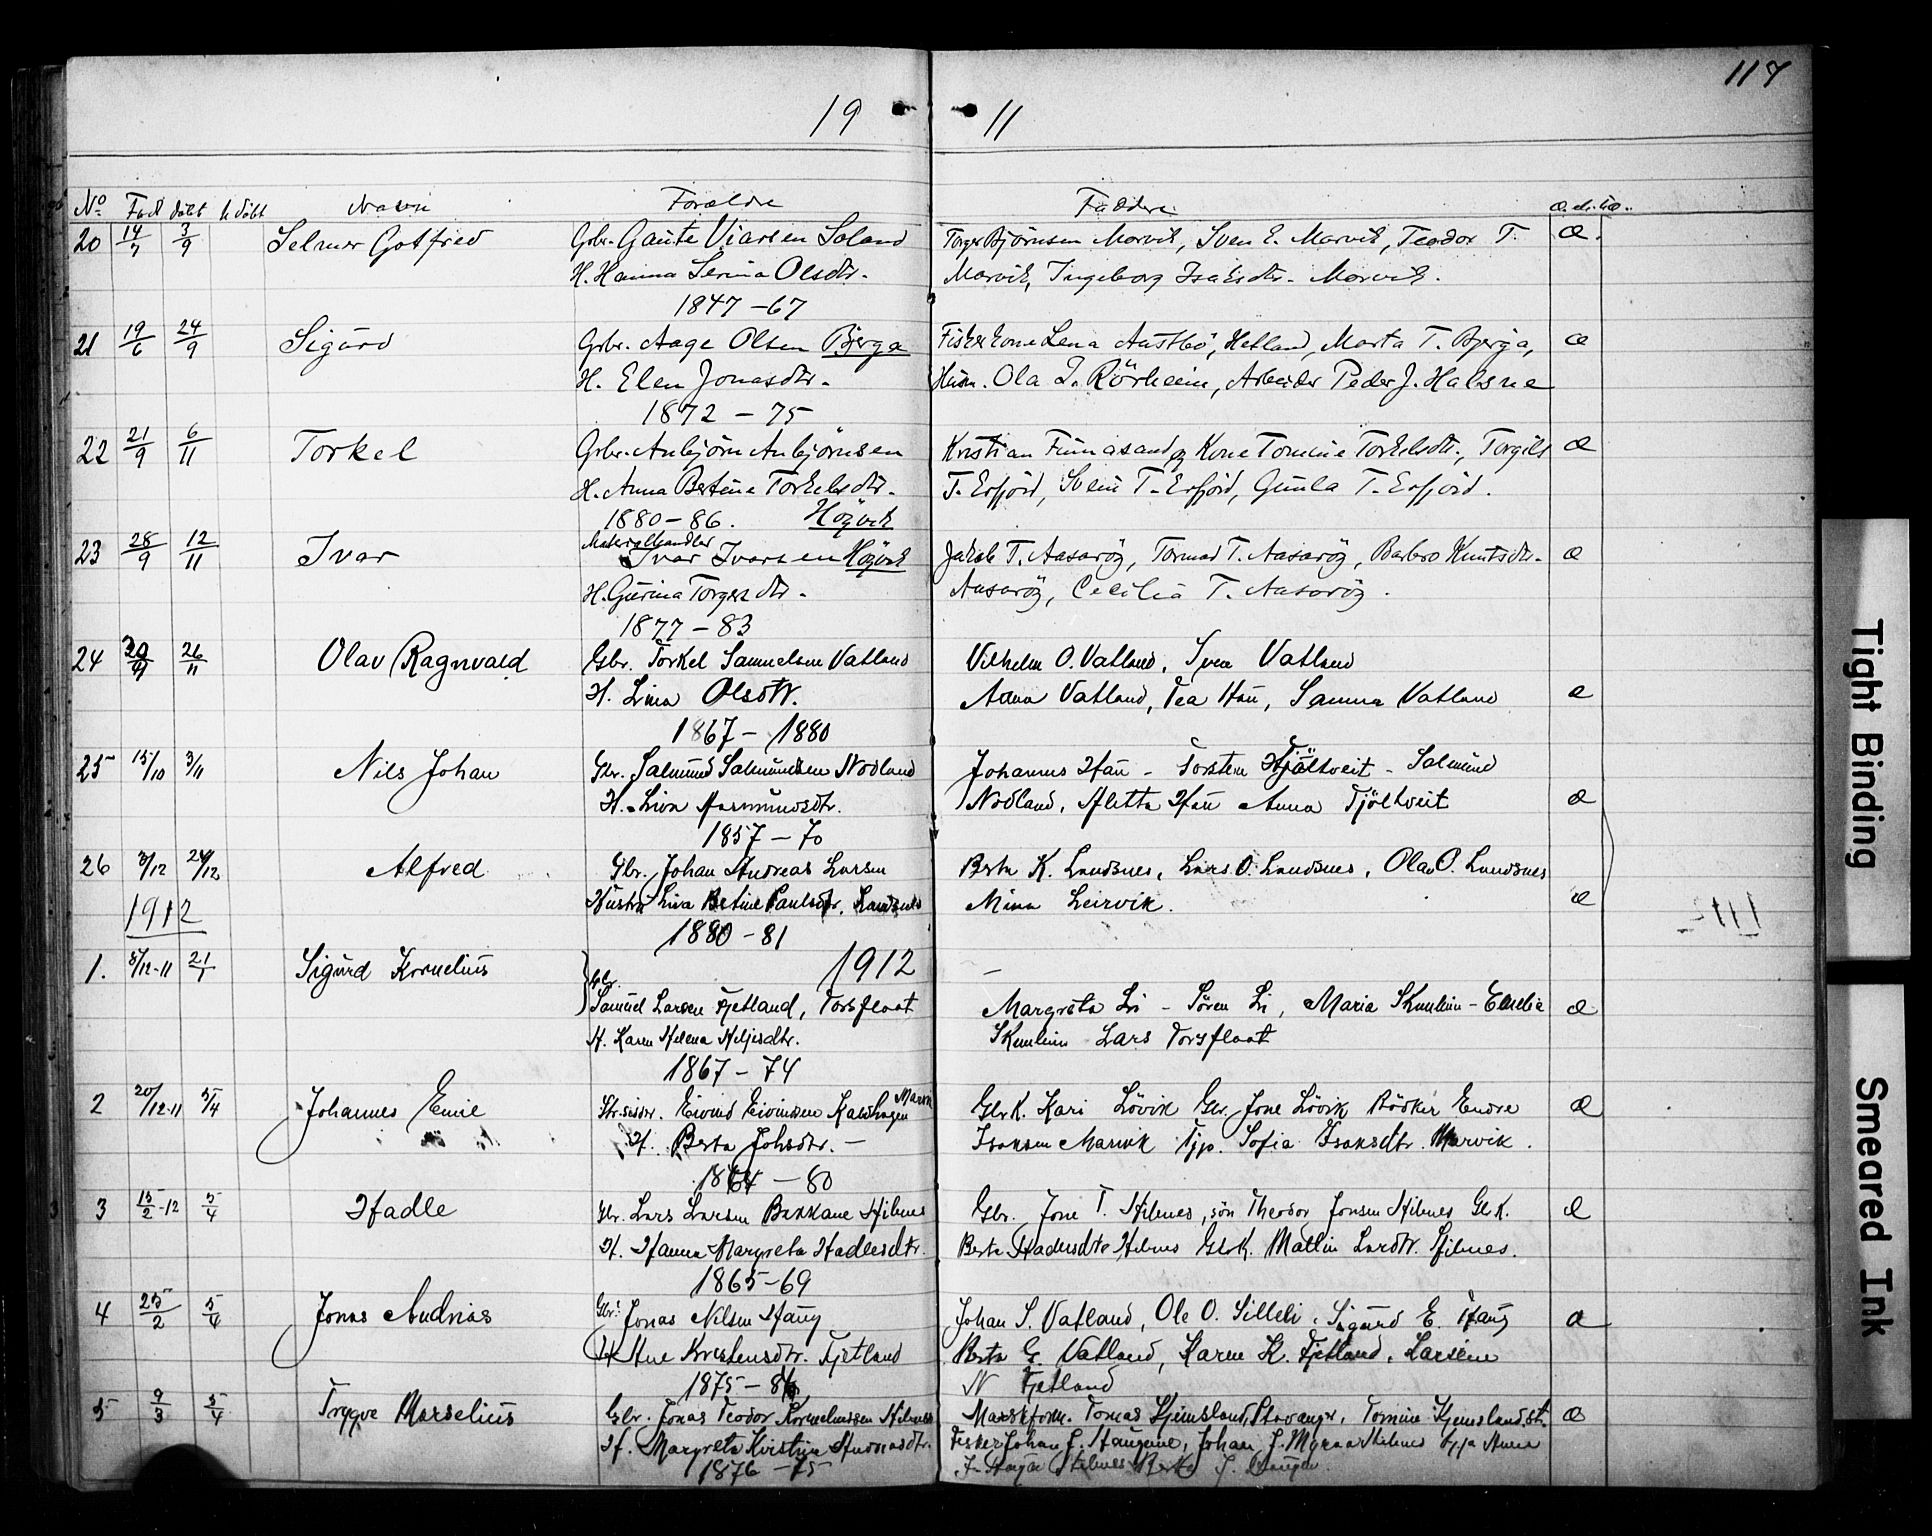 117
19 11
No Fød døbt h. døbt Navn Forældre Faddere
20 14/7 3/9 Selmer Gotfred Gbr. Gaute Viarsen Soland Torger Bjørnsen Marvik, Sven E. Marvik, Teodor T. Æ.
H. Hanna Serina Olsdtr. Marvik, Ingeborg Isaksdtr. Marvik.
1847 - 67
21 19/6 24/9 Sigurd Gbr. Aage Olsen Bjerga Fiskerkone Lena Austbö, Hetland, Marta T. Bjerga, Æ
H. Elen Jonasdtr. Husm. Ola I. Rörheim, Arbeider Peder J. Halsne
1872 - 75
22 21/9 6/11 Torkel Gbr. Anbjörn Anbjörnsen Kristian Funnasand og Kone Tomine Torkelsdtr., Torgils Æ
H. Anna Bertine Torkelsdtr. T. Erfjord, Svein T. Erfjord, Gunla T. Erfjord.
1880 - 86. Högvik
23 28/9 12/11 Ivar Materialhandler Ivar Ivarsen Högvik Jakob T. Aasaröy, Tormod T. Aasaröy, Barbro Knutsdtr. Æ
H. Gurina Torgersdtr. Aasaröy, Cecilia T. Aasaröy.
1877 - 83
24 26/11 Olav Ragnvald Gbr. Torkel Samuelsen Vatland Vilhelm O. Vatland, Sven Vatland
H. Lina Olsdtr. Anna Vatland, Tea Hau, Samuna Vatland Æ
1867 - 1880
25 15/10 3/11 Nils Johan Gbr. Salmund Salmundsen Nodland Johannes Hau - Torsten Tjöltveit - Salmund
H. Liva Aasmundsdtr. Nodland, Aletta Hau Anna Tjöltveit Æ
1857 - 70
26 3/12 24/12 Alfred Gbr. Johan Andreas Larsen Berta K. Landsnes, Lars O. Landsnes, Ola O. Landsnes
1912 Hustru Lina Betine Paulsdtr. Landsnes Mina Leirvik. Æ
1880 - 81
1. 8/12-11 21/1 Sigurd Kornelius 1912
Gbr. Samuel Larsen Fjetland, Torsfloat Margreta Li - Sören Li, Maria Skeuleim - Emelia Æ
H. Karen Helena Heljesdtr. Skeuleim Lars Torsfloat
1867 - 74
2 20/12-11 5/4 Johannes Emil Eivind Eivindsen Kaldhagen Marvik GbrK. Kari Lövik Gbr. Jone Lövik Bödker Endre Æ
H. Berta Johsdtr. - Isaksen Marvik Tjp. Sofia Isaksdtr. Marvik.
1864 - 80
3 15/2-12 5/4 Hadle Gbr. Lars Larsen Bakkane Hebnes Gbr. Jone T. Hebnes, sön Theodor Jonsen Hebnes GbK. Æ
H. Hanna Margreta Hadlesdtr. Berta Hadlesdtr Hebnes GbrK. Mallin Larsdtr. Hebnes.
1865 - 69
4 25/2 5/4 Jonas Andrias Gbr. Jonas Nilsen Haug Johan S. Vatland, Ole O. Silleli, Sigurd E. Haug Æ
H. Ane Kristensdtr. Fjetland Berta G. Vatland, Karen K. Fjetland, Larsine
1875 - N Fjetland
5 9/3 5/4 Trygve Marselius Gbr. Jonas Teodor Korneliussen Hebnes Maskform. Tomas Hjemsland, Stavanger, Tomine Hjemsland st. Æ
H. Margreta Kirstine Andreasdtr. Fisker Johan J. Haugene, Johan J. Myraa Hebnes Anna
1876 - 75 J. Hebnes Berta J. Haugen